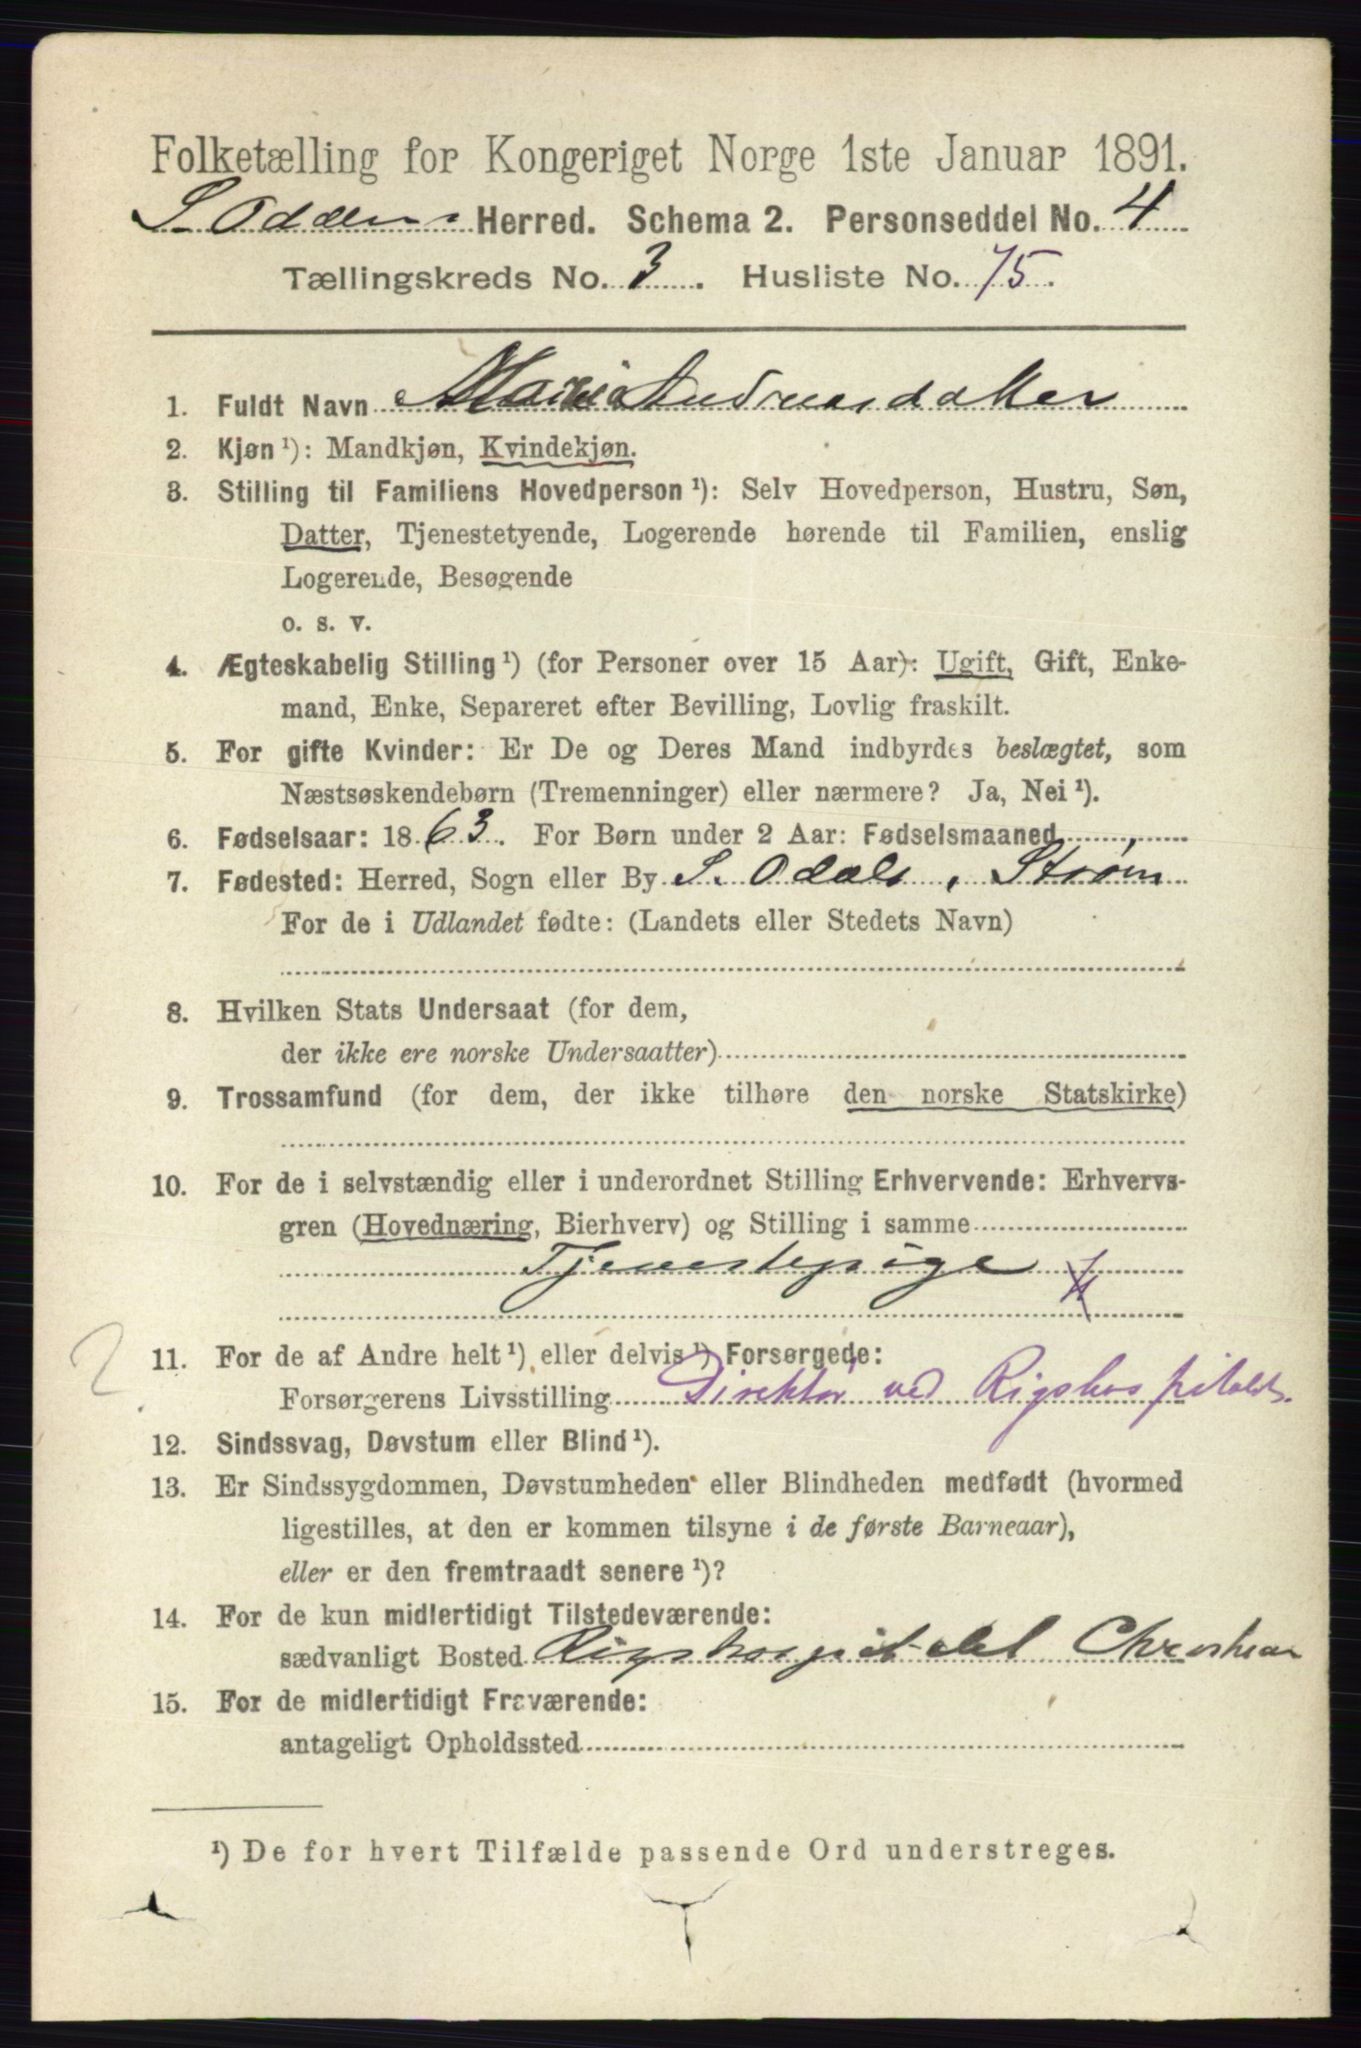 Folketælling for Kongeriget Norge 1ste Januar 1891.
Herred. Schema 2. Personseddel No. 4
Tællingskreds No. 3. Husliste No. 75.
1. Fuldt Navn Marie Andreasdatter
2. Kjøn ¹): Mandkjøn, Kvindekjøn.
3. Stilling til Familiens Hovedperson ¹): Selv Hovedperson, Hustru, Søn,
Datter, Tjenestetyende, Logerende hørende til Familien, enslig
Logerende, Besøgende
o. s. v.
4. Ægteskabelig Stilling ¹) (for Personer over 15 Aar): Ugift, Gift, Enke-
mand, Enke, Separeret efter Bevilling, Lovlig fraskilt.
5. For gifte Kvinder: Er De og Deres Mand indbyrdes beslægtet, som
Næstsøskendebørn (Tremenninger) eller nærmere? Ja, Nei ¹).
6. Fødselsaar: 1863. For Børn under 2 Aar: Fødselsmaaned
7. Fødested: Herred, Sogn eller By S. Odalen, Strøm
For de i Udlandet fødte: (Landets eller Stedets Navn)
8. Hvilken Stats Undersaat (for dem,
der ikke ere norske Undersaatter)
9. Trossamfund (for dem, der ikke tilhøre den norske Statskirke)
10. For de i selvstændig eller i underordnet Stilling Erhvervende: Erhvervs-
gren (Hovednæring, Bierhverv) og Stilling i samme
Tjenestepige
2
11. For de af Andre helt ¹) eller delvis ¹) Forsørgede:
Forsørgerens Livsstilling Direktør ved Rigshospitalet.
12. Sindssvag, Døvstum eller Blind ¹).
13. Er Sindssygdommen, Døvstumheden eller Blindheden medfødt (hvormed
ligestilles, at den er kommen tilsyne i de første Barneaar),
eller er den fremtraadt senere ¹)?
14. For de kun midlertidigt Tilstedeværende:
sædvanligt Bosted Rigshospitalet Christian
15. For de midlertidigt Fraværende:
antageligt Opholdssted
¹) De for hvert Tilfælde passende Ord understreges.